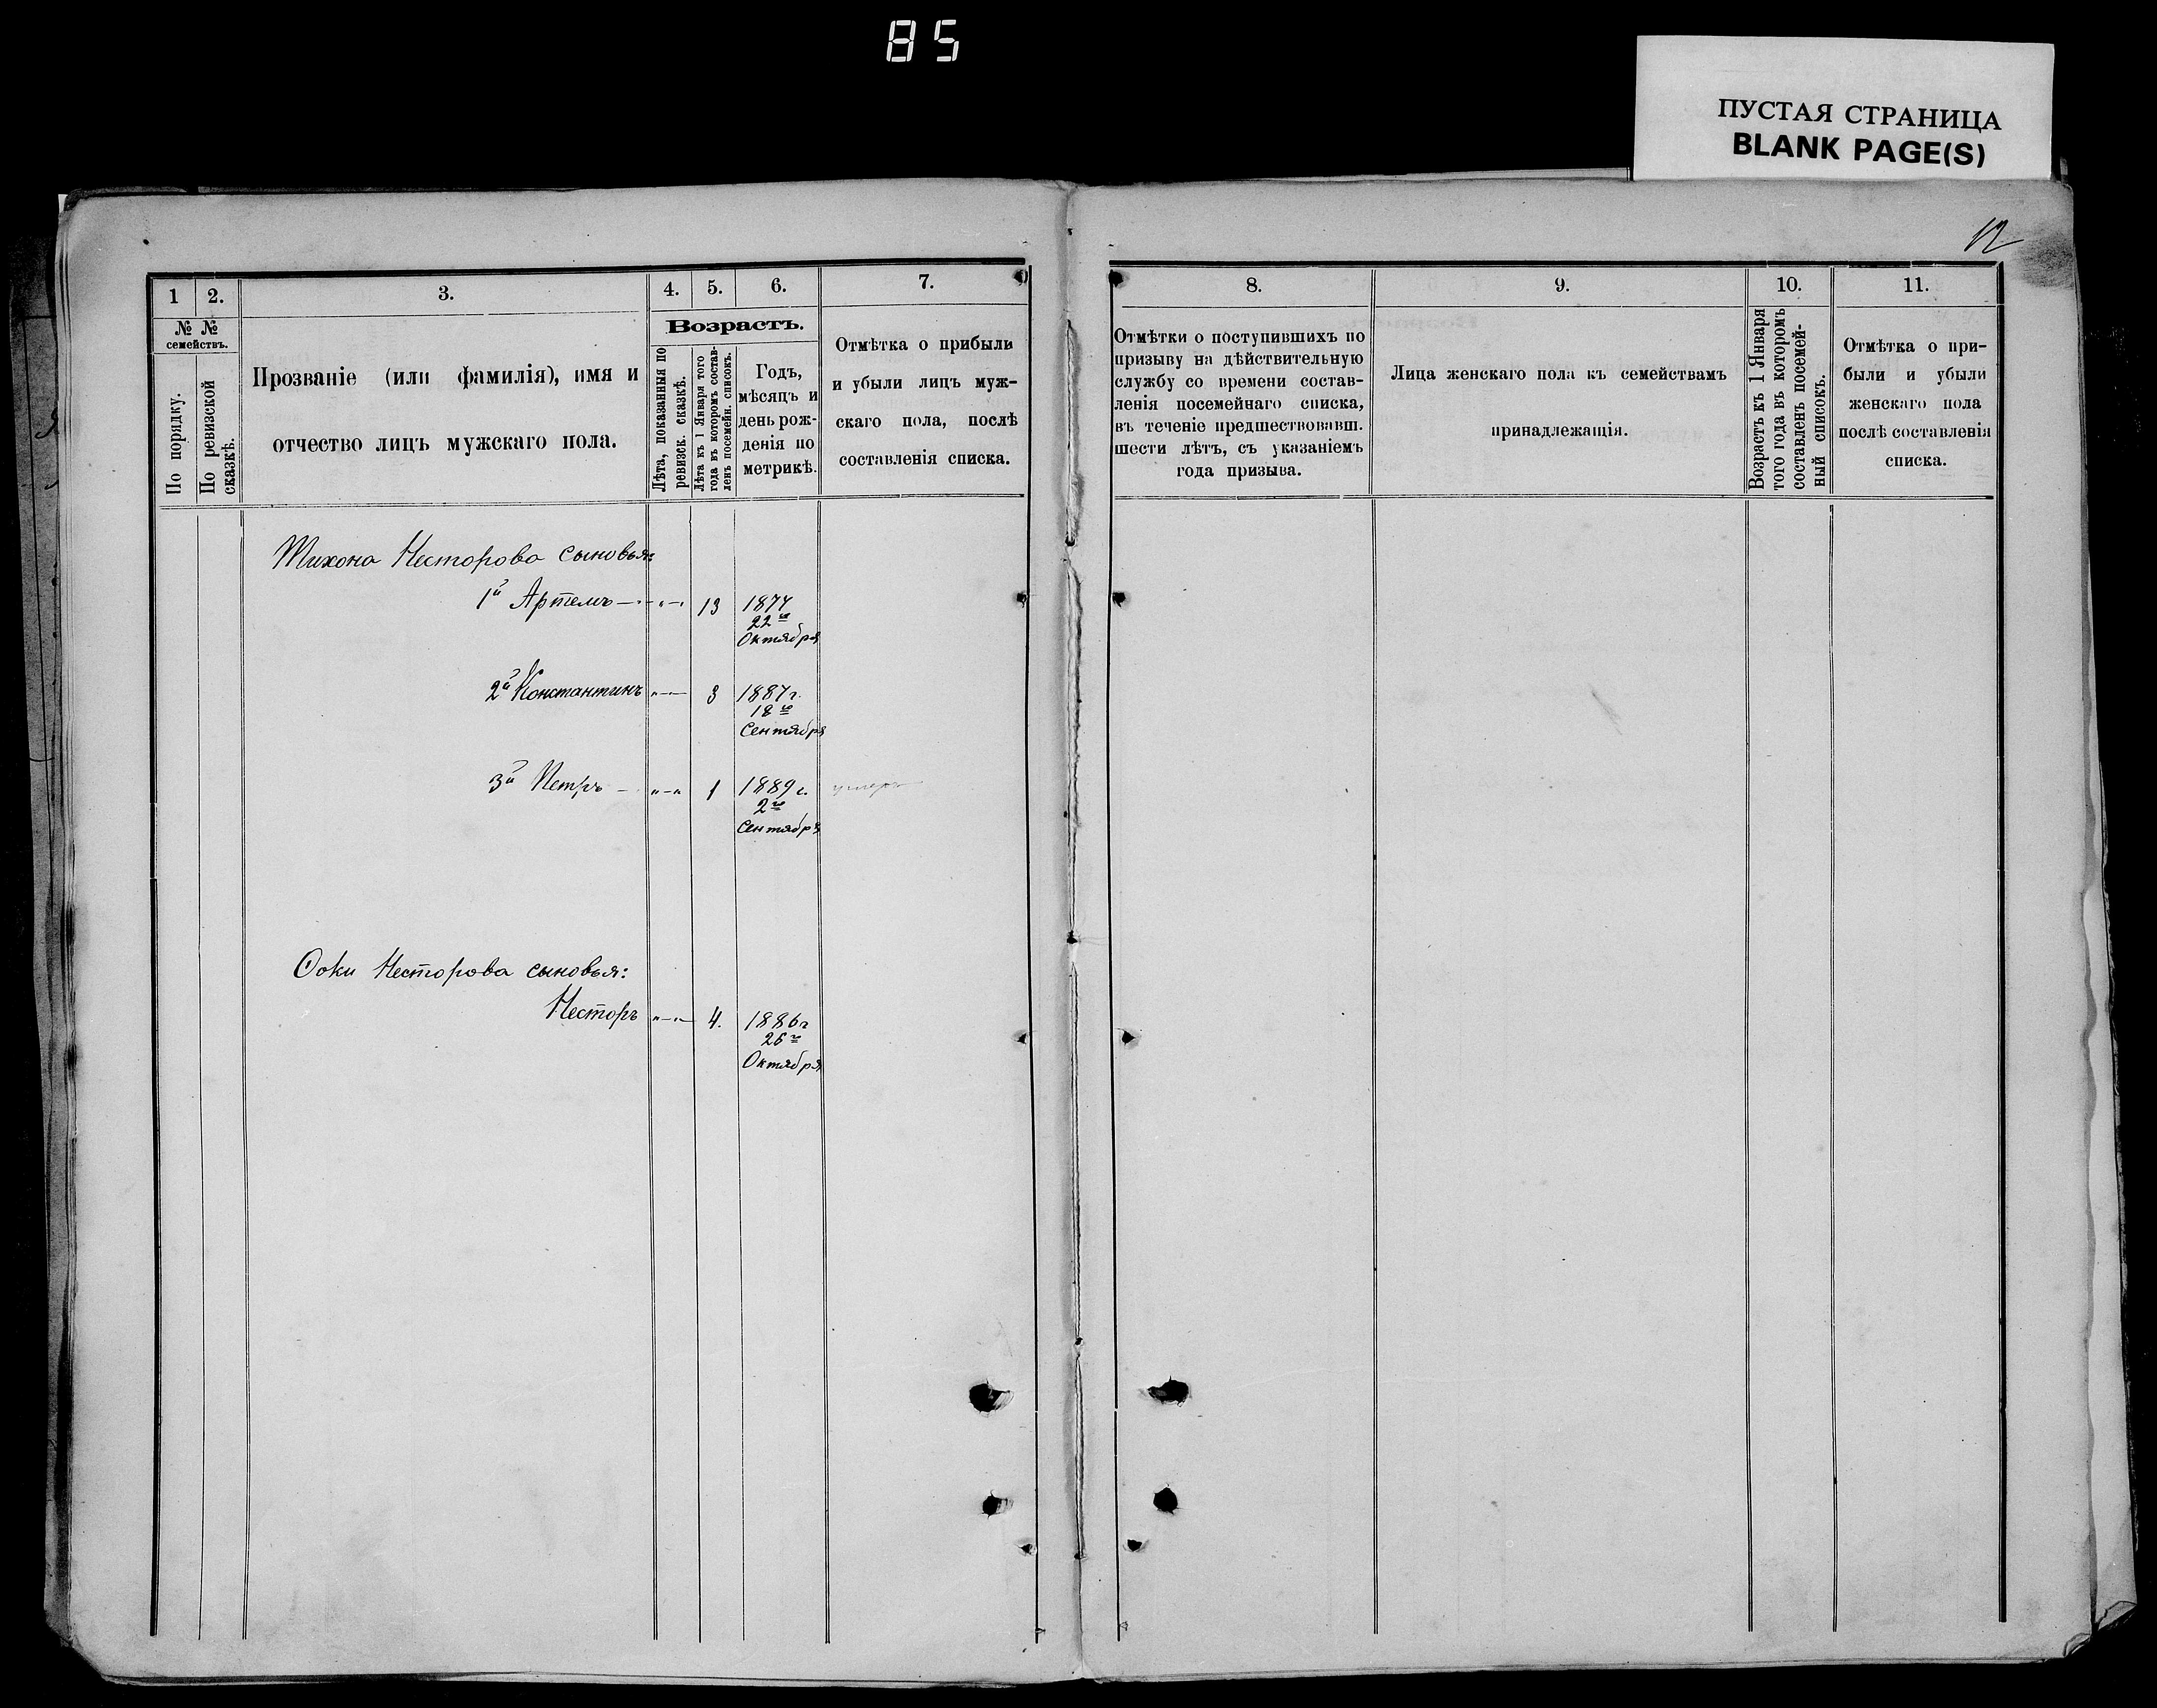 85
ПУСТАЯ СТРАНИЦА
BLANK PAGE(S)
12
1
2.
3.
4.
5.
6.
7.
№ №
семействъ.
По порядку.
По ревизской
сказкѣ.
Прозваніе (или фамилія), имя и
отчество лицъ мужскаго пола.
Возрастъ.
Лѣта, показанныя по
ревизск. сказкѣ.
Лѣта къ 1 Января того
года въ которомъ состав-
ленъ посемейн. списокъ.
Годъ,
мѣсяцъ и
день рож-
денія по
метрикѣ.
Отмѣтка о прибыли
и убыли лицъ муж-
скаго пола, послѣ
составленія списка.
Тихона Несторова сыновья:
1й Артемъ — „ — 13 1877
22го
Октября
2й Константинъ „ — 3 1887г.
18го
Сентября
3й Петръ — „ — „ 1 1889г. умеръ
2го
Сентября
Ѳоки Несторова сыновья:
Несторъ „ — „ — 4. 1886г
26го
Октября
8.
9.
10.
11.
Отмѣтки о поступившихъ по
призыву на дѣйствительную
службу со времени состав-
ленія посемейнаго списка,
въ теченіе предшествовавш.
шести лѣтъ, съ указаніемъ
года призыва.
Лица женскаго пола къ семействамъ
принадлежащія.
Возрастъ къ 1 Января
того года въ которомъ
составленъ посемей-
ный списокъ.
Отмѣтка о при-
были и убыли
женскаго пола
послѣ составленія
списка.